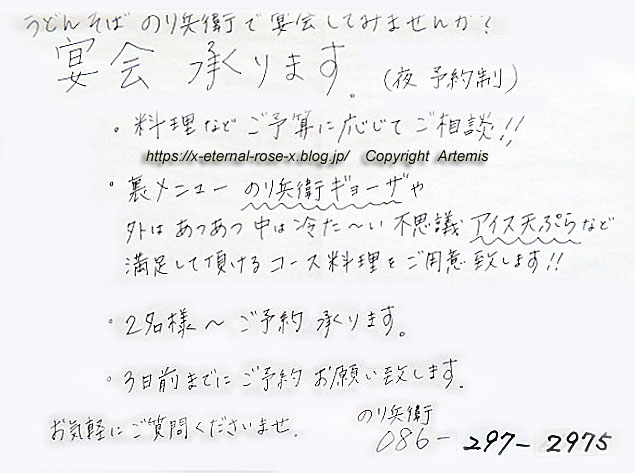 うどんそば のり兵衛で宴会してみませんか?
宴会 承ります。(夜 予約制)
・料理など ご予算に応じて ご相談!!
https://x-eternal-rose-x.blog.jp/ Copyright Artemis
・裏メニュー のり兵衛ギョーザや
外は あつあつ 中は 冷た~い 不思議 アイス天ぷらなど
満足して頂ける コース料理を ご用意 致します!!
・2名様~ ご予約 承ります。
・3日前までに ご予約 お願い致します。
お気軽に ご質問くださいませ.
のり兵衛
086-297-2975